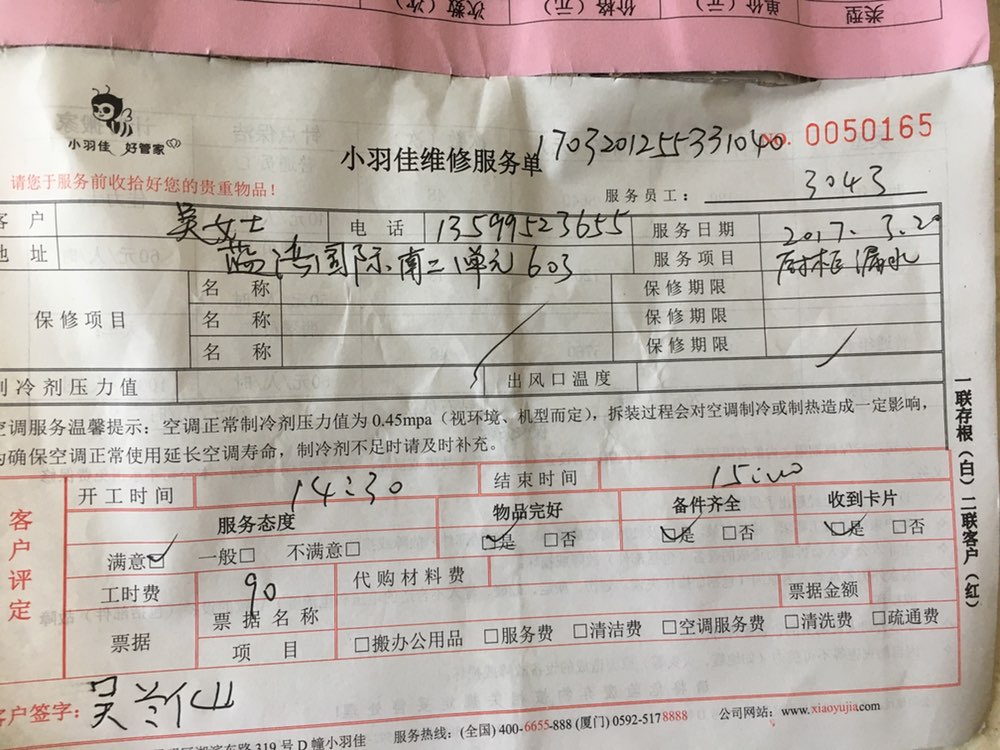 类型 单价（元） 价格（元） 次数（次）
小羽佳 好管家
小羽佳维修服务单 1703201255331040 No. 0050165
请您于服务前收拾好您的贵重物品！
服务员工： 3043
客户 吴女士 电话 13599523655 服务日期 2017.3.20
地址 蓝湾国际南二1单元603 服务项目 厨柜漏水
保修项目
名称 保修期限
名称 保修期限
名称 保修期限
制冷剂压力值 出风口温度
空调服务温馨提示：空调正常制冷剂压力值为0.45mpa（视环境、机型而定），拆装过程会对空调制冷或制热造成一定影响，
为确保空调正常使用延长空调寿命，制冷剂不足时请及时补充。
一联存根（白）二联客户（红）
客户评定
开工时间 14:30 结束时间 15:00
服务态度 物品完好 备件齐全 收到卡片
满意☑ 一般□ 不满意□ ☑是 □否 ☑是 □否 ☑是 □否
工时费 90 代购材料费 票据金额
票据 票据名称
项目 □搬办公用品 □服务费 □清洁费 □空调服务费 □清洗费 □疏通费
客户签字：吴兰仙
湖滨东路319号D幢小羽佳 服务热线：(全国) 400-6655-888 (厦门) 0592-5178888 公司网站：www.xiaoyujia.com